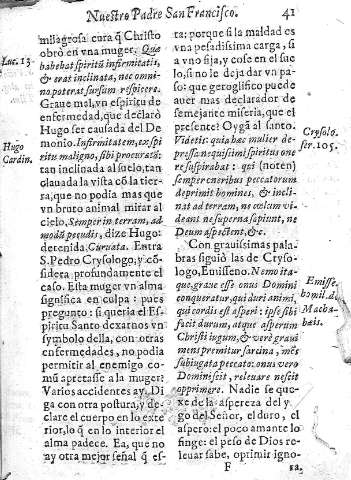 Nuestro Padre San Francisco. 41
Luc. 13.
Hugo
Cardin.
milagrosa cura q̃ Christo
obrò en vna muger. Quæ
habebat spiritũ infirmitatis,
& erat inclinata, nec omni-
no poterat sursum respicere.
Graue mal, vn espiritu de
enfermedad, que declarò
Hugo ser causada del De
monio. Infirmitatem, ex spi
ritu maligno, sibi procuratã:
tan inclinada al suelo, tan
clauada la vista cõ la tier-
ra, que no podia mas que
vn bruto animal mirar al
cielo, Semper in terram, ad
modũ pecudis, dize Hugo:
detenida, Curuata. Entra
S. Pedro Crysologo, y cõ-
sidera profundamente el
caso. Esta muger vn alma
significa en culpa: pues
pregunto: si queria el Es-
piritu Santo dexarnos vn
symbolo della, con otras
enfermedades, no podia
permitir al enemigo co-
mũ apretasse a la muger?
Varios accidentes ay. Di
ga con otra postura, y de-
clare el cuerpo en lo exte
rior, lo q̃ en lo interior el
alma padece. Ea, que no
ay otra mejor señal q̃ es-
ta: porque si la maldad es
vna pesadissima carga, si
a vno fixa, y cose en el sue
lo, si no le deja dar vn pa-
so: que geroglifico puede
auer mas declarador de
semejante miseria, que el
presente? Oygã al santo.
Videtis quia hæc mulier de-
pressa nequissimi spiritus one
re suspirabat: qui (noten)
semper oneribus peccatorum
deprimit homines, & incli-
nat ad terram, ne cœlum vi-
deant ne superna sapiunt, ne
Deum aspicient, &c.
Con grauissimas pala-
bras siguiò las de Cryso-
logo, Euisseno. Nemo ita-
que, graue esse onus Domini
conqueratur, qui duri animi,
qui cordis est asperi: ipse sibi
facit durum, atque asperum
Christi iugum, & verè graui
mens premitur sarcina, mẽs
subiugata peccato: onus vero
Domini scit, releuare nescit
opprimere. Nadie se que-
xe de la aspereza del y-
go del Señor, el duro, el
aspero: el poco amante lo
finge: el peso de Dios re-
leuar sabe, optimir igno-
F sa,
Crysolo.
ser. 105.
Emisse.
homil. de
Macha-
bæis.